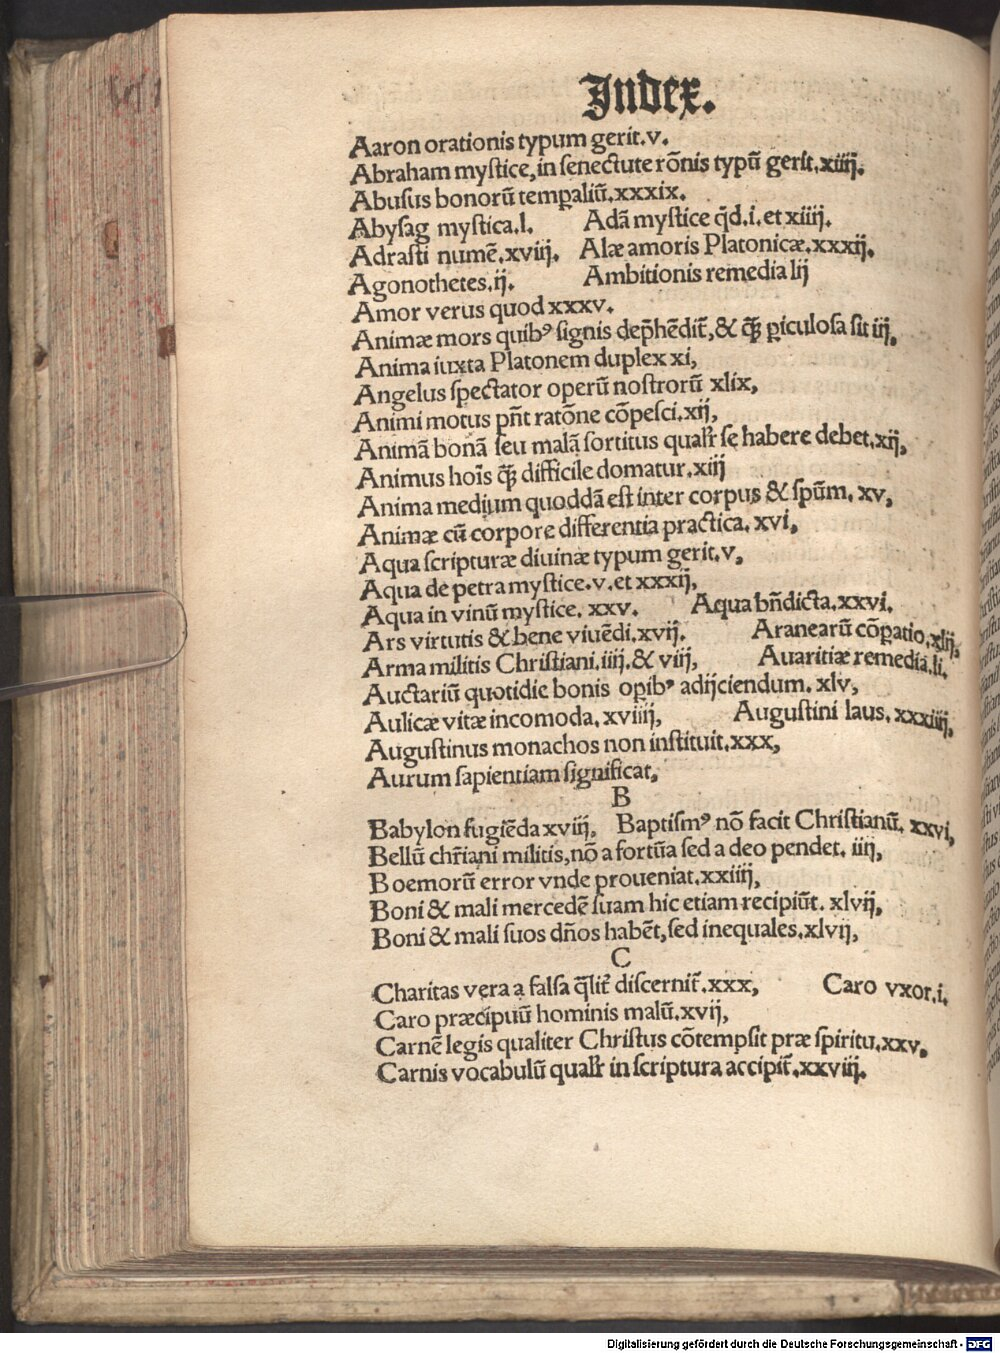 Index.
Aaron orationis typum gerit.v.
Abraham mystice,in senectute rõnis typũ gerit.xiiij.
Abusus bonorũ tempaliũ.xxxix.
Abysag mystica.l. Adã mystice qd.i.et xiiij.
Adrasti numẽ.xviij. Alæ amoris Platonicæ.xxxij.
Agonothetes.ij. Ambitionis remedia lij
Amor verus quod xxxv.
Animæ mors quibꝰ signis dep̃hẽdit̃,& q̃ꝫ ꝑiculosa sit iij,
Anima iuxta Platonem duplex xi,
Angelus spectator operũ nostrorũ xlix,
Animi motus pñt ratõne cõpesci.xij,
Animã bonã seu malã sortitus qualr̃ se habere debet.xij,
Animus hoĩs q̃ꝫ difficile domatur.xiij
Anima medium quoddã est inter corpus & spũm. xv,
Animæ cũ corpore differentia practica. xvi,
Aqua scripturæ diuinæ typum gerit.v,
Aqua de petra mystice.v.et xxxij,
Aqua in vinũ mystice. xxv. Aqua bñdicta.xxvi.
Ars virtutis & bene viuẽdi.xvij. Aranearũ cõꝑatio.xlij,
Arma militis Christiani.iiij.& viij, Auaritiæ remedia.li.
Auctariũ quotidie bonis opibꝰ adijciendum. xlv,
Aulicæ vitæ incomoda.xviiij, Augustini laus.xxxiiij,
Augustinus monachos non instituit.xxx,
Aurum sapientiam significat,
B
Babylon fugiẽda xviij, Baptismꝰ nõ facit Christianũ. xxvi,
Bellũ chr̃iani militis,nõ a fortũa sed a deo pendet. iiij,
Boemorũ error vnde proueniat.xxiiij,
Boni & mali mercedẽ suam hic etiam recipiũt. xlvij,
Boni & mali suos dños habẽt,sed inequales.xlvij,
C
Charitas vera a falsa q̃lit̃ discernit̃.xxx, Caro vxor.i.
Caro præcipuũ hominis malũ.xvij,
Carnẽ legis qualiter Christus cõtempsit præ spiritu.xxv,
Carnis vocabulũ qualr̃ in scriptura accipit̃.xxviij.
Digitalisierung gefördert durch die Deutsche Forschungsgemeinschaft - DFG